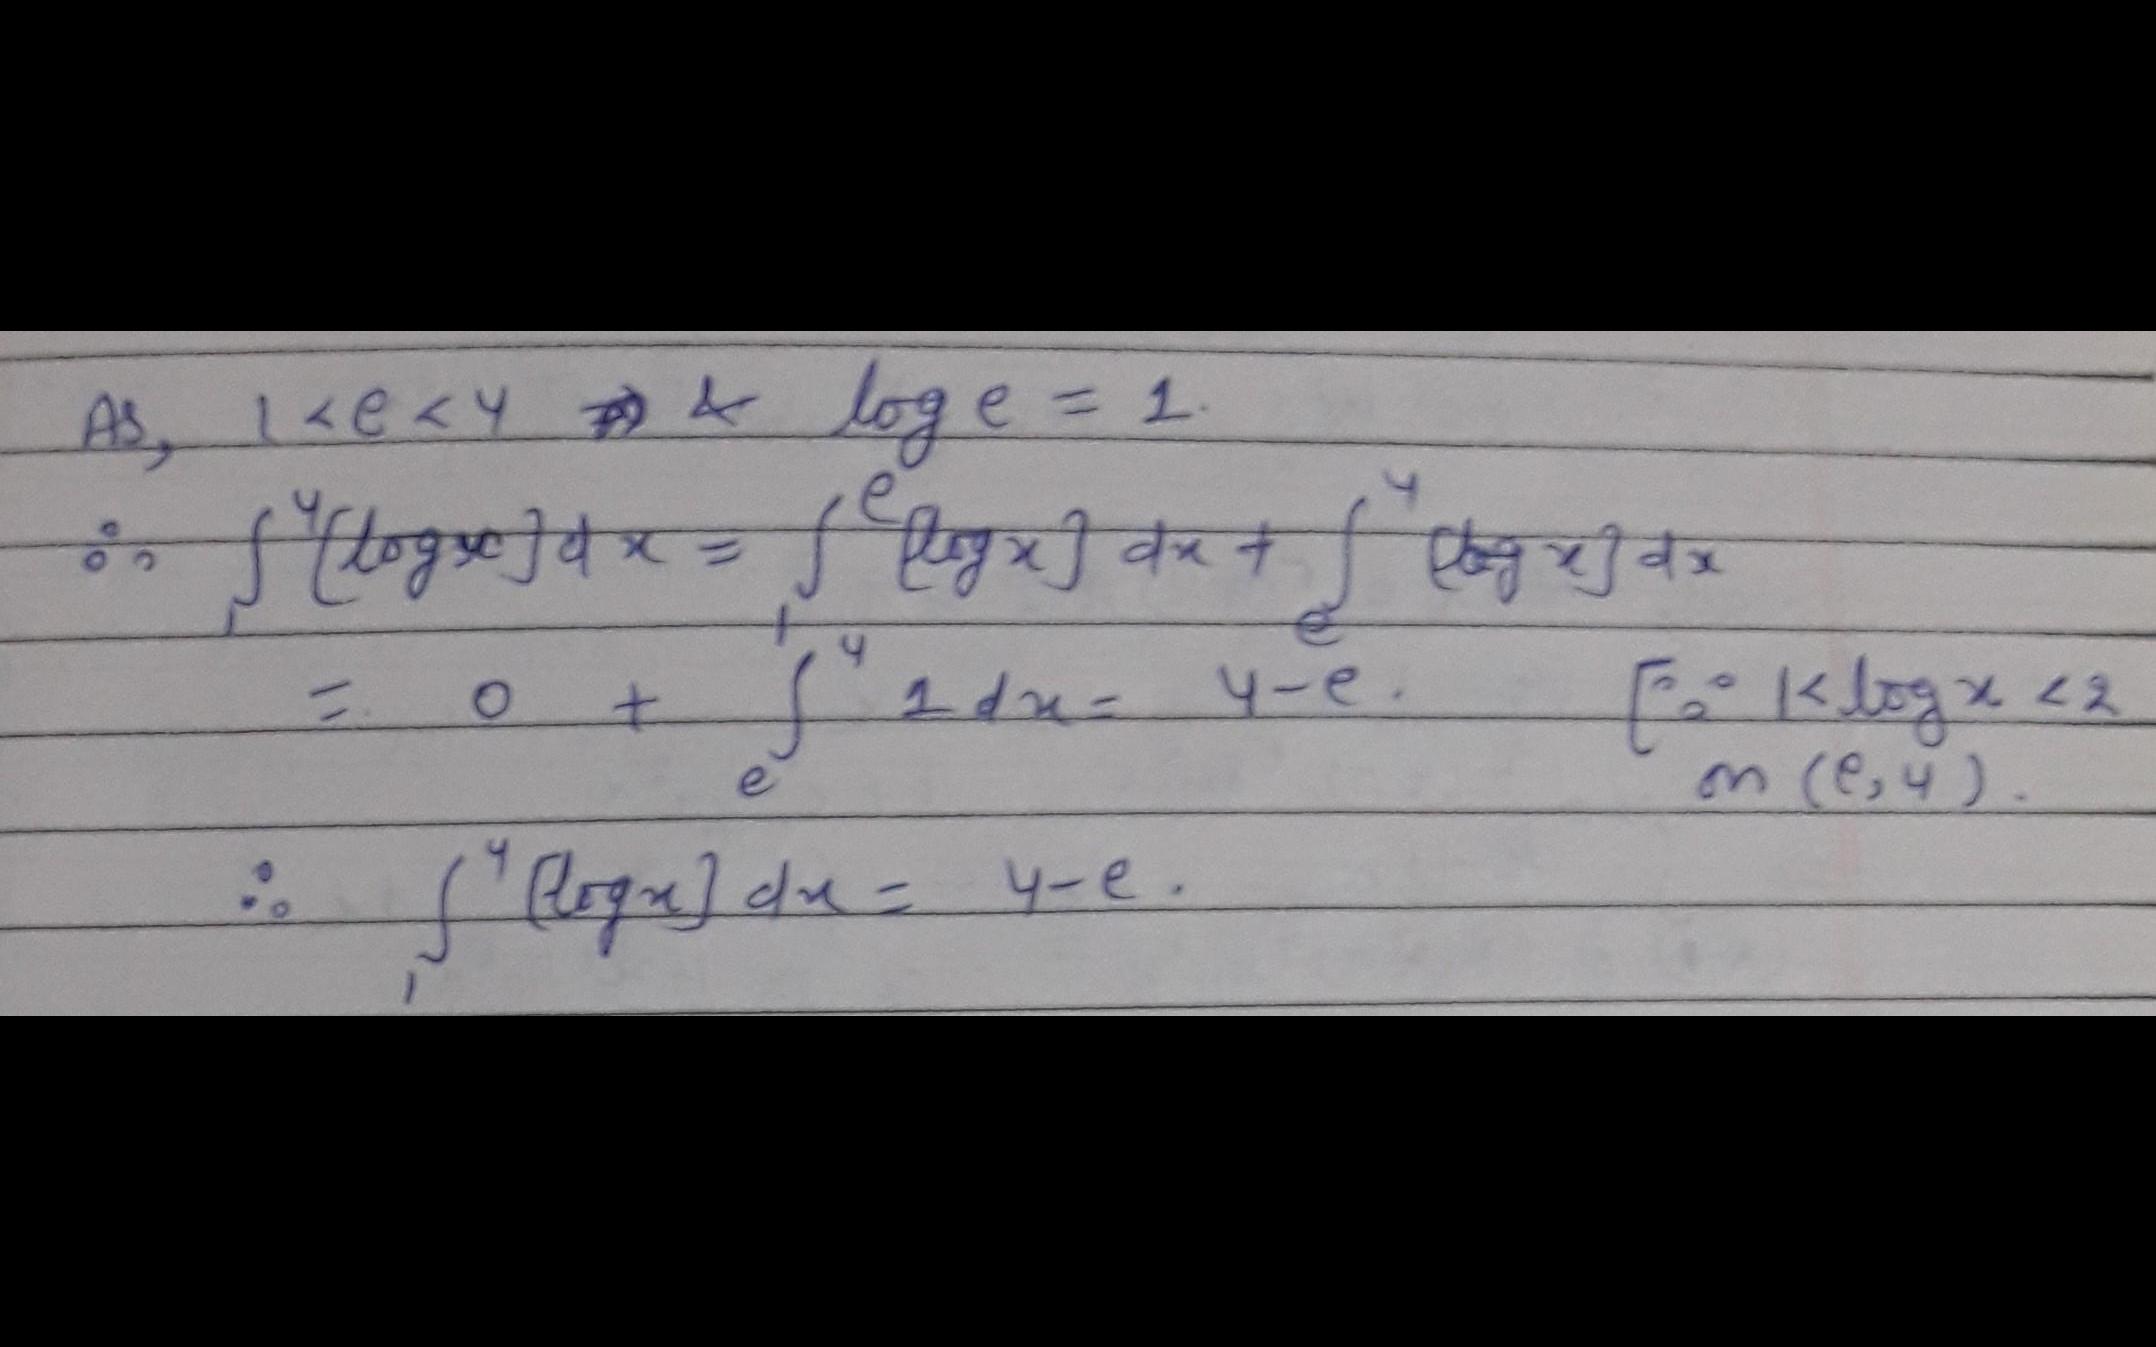 As, 1 < e < 4 & log e = 1.
∴ ∫₁⁴ [log x] dx = ∫₁ᵉ [log x] dx + ∫ₑ⁴ [log x] dx
= 0 + ∫ₑ⁴ 1 dx = 4 - e. [∵ 1 < log x < 2
on (e, 4).
∴ ∫₁⁴ [log x] dx = 4 - e.